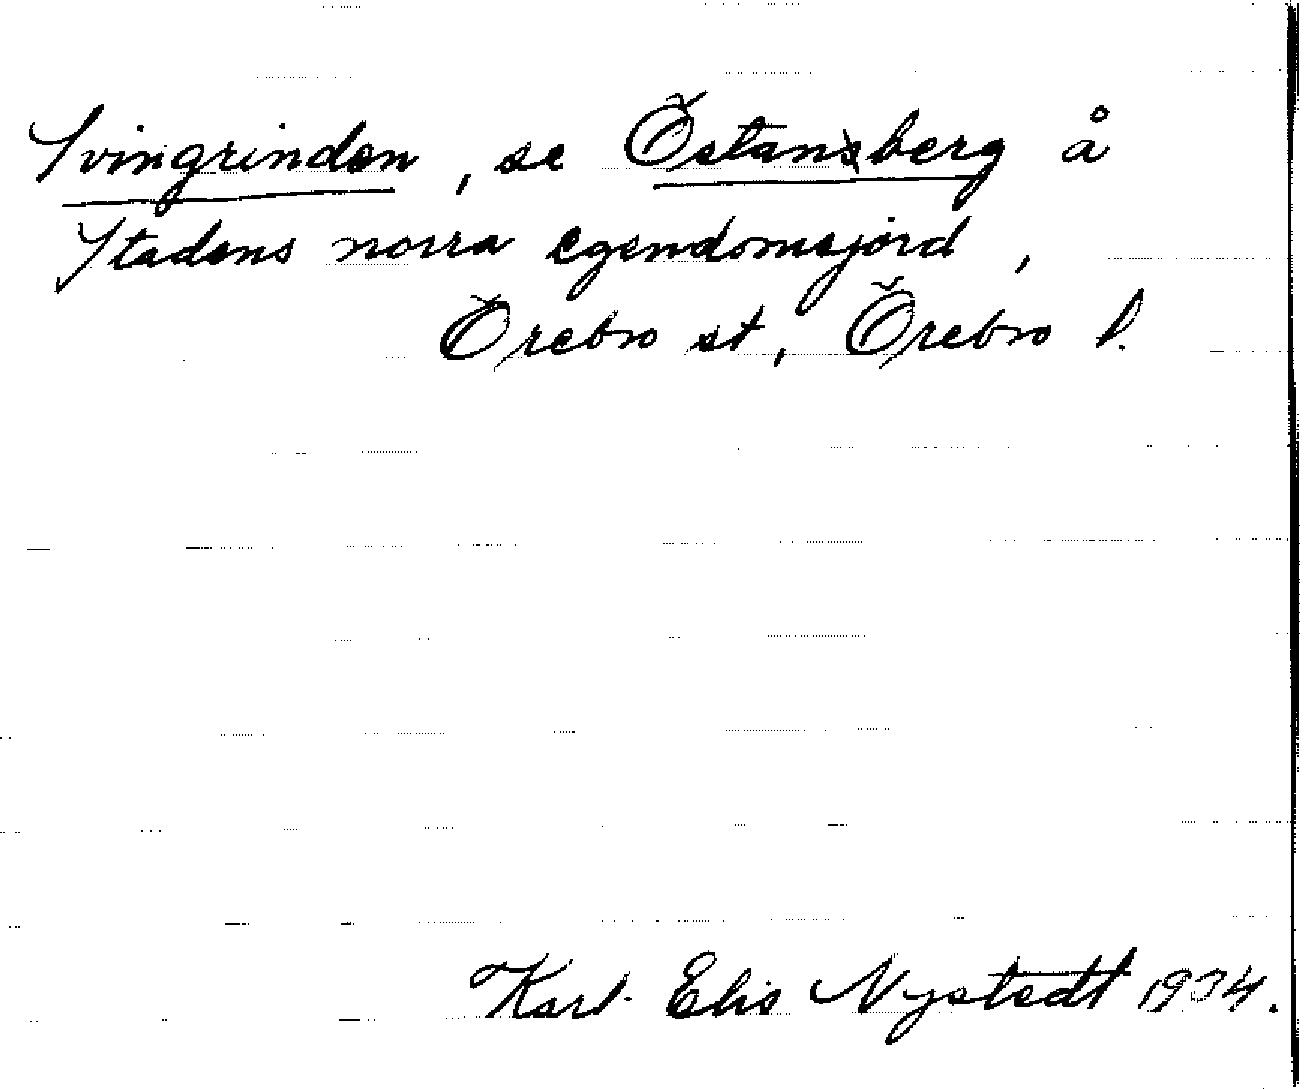 Svingrinden, se Östansberg å
Stadens norra egendomsjord,
Örebro st, Örebro l.
Karl Elis Nystedt 1934.